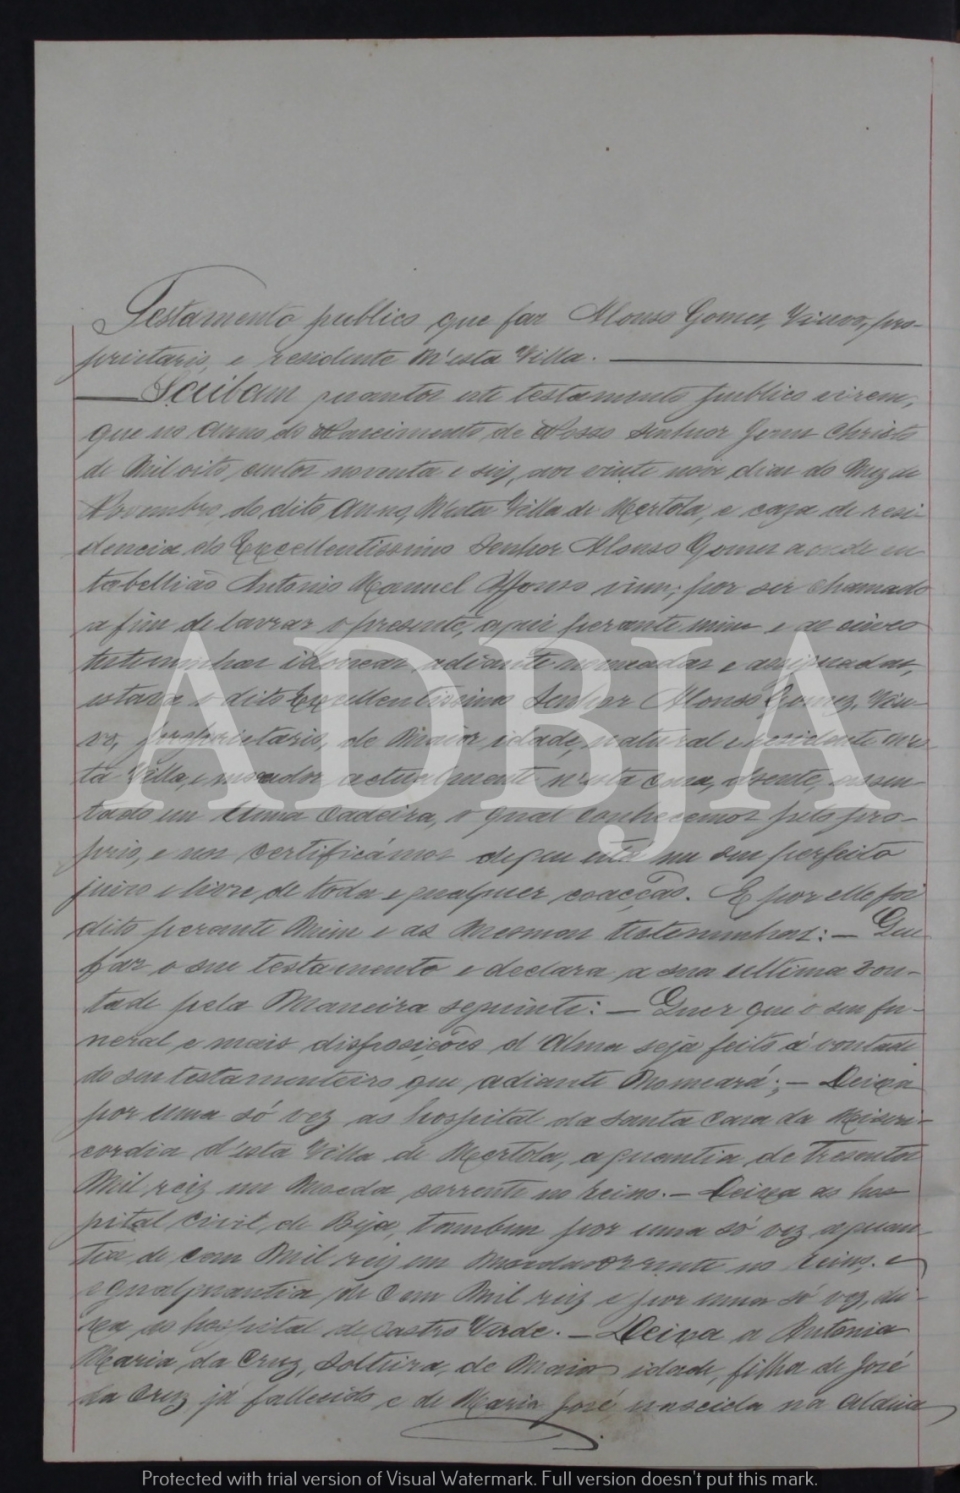 Testamento publico que faz Alonso Gomez, Viuvo, pro-
prietario, e residente N'esta Villa.
Saibam quantos este testamento publico virem,
que no Anno do Nascimento de Nosso Senhor Jesus Christo
de Mil oito centos noventa e seis, aos vinte nove dias do Mez de
Novembro, do dito Anno, N'esta Villa de Mertola, e caza de resi-
dencia do Excellentissimo Senhor Alonso Gomes aonde eu
tabellião Antonio Manuel Affonso vim, por ser chamado
a fim de lavrar o presente, aqui perante mim e as cinco
testemunhas idoneas, adiante nomeadas e assignadas,
estava o dito Excellentissimo Senhor Alonso Gomez, Viu-
vo, proprietario, de Maior idade, natural e residente nes-
ta Villa, e morador actualmente nesta casa, doente, assen-
tado em Uma Cadeira, o qual conhecemos pelo pro-
prio, e nos certificámos de que está no seu perfeito
juizo e livre de toda e qualquer coacção. E por elle foi
dito perante Mim e as Mesmas testemunhas: — Que
faz o seu testamento e declara a sua ultima von-
tade pela Maneira seguinte: — Quer que o seu fu-
neral e mais disposições d'Alma seja feito á vontade
do seu testamenteiro que adiante Nomeará; — Deixa
por uma só vez ao hospital da Santa Casa da Miseri-
cordia d'esta Villa de Mertola, a quantia de Tresentos
Mil reis em Moeda corrente no reino. — Deixa ao hos-
pital Civil de Beja, tambem por uma só vez a quan-
tia de Cem Mil reis em Moeda corrente no Reino. e
egual quantia de Cem Mil reis e por uma só vez, dei-
xa ao hospital de Castro Verde. — Deixa a Antonia
Maria da Cruz, Solteira, de Maior idade, filha de José
da Cruz já fallecido e de Maria José, nascida na Aldeia
ADBJA
Protected with trial version of Visual Watermark. Full version doesn't put this mark.